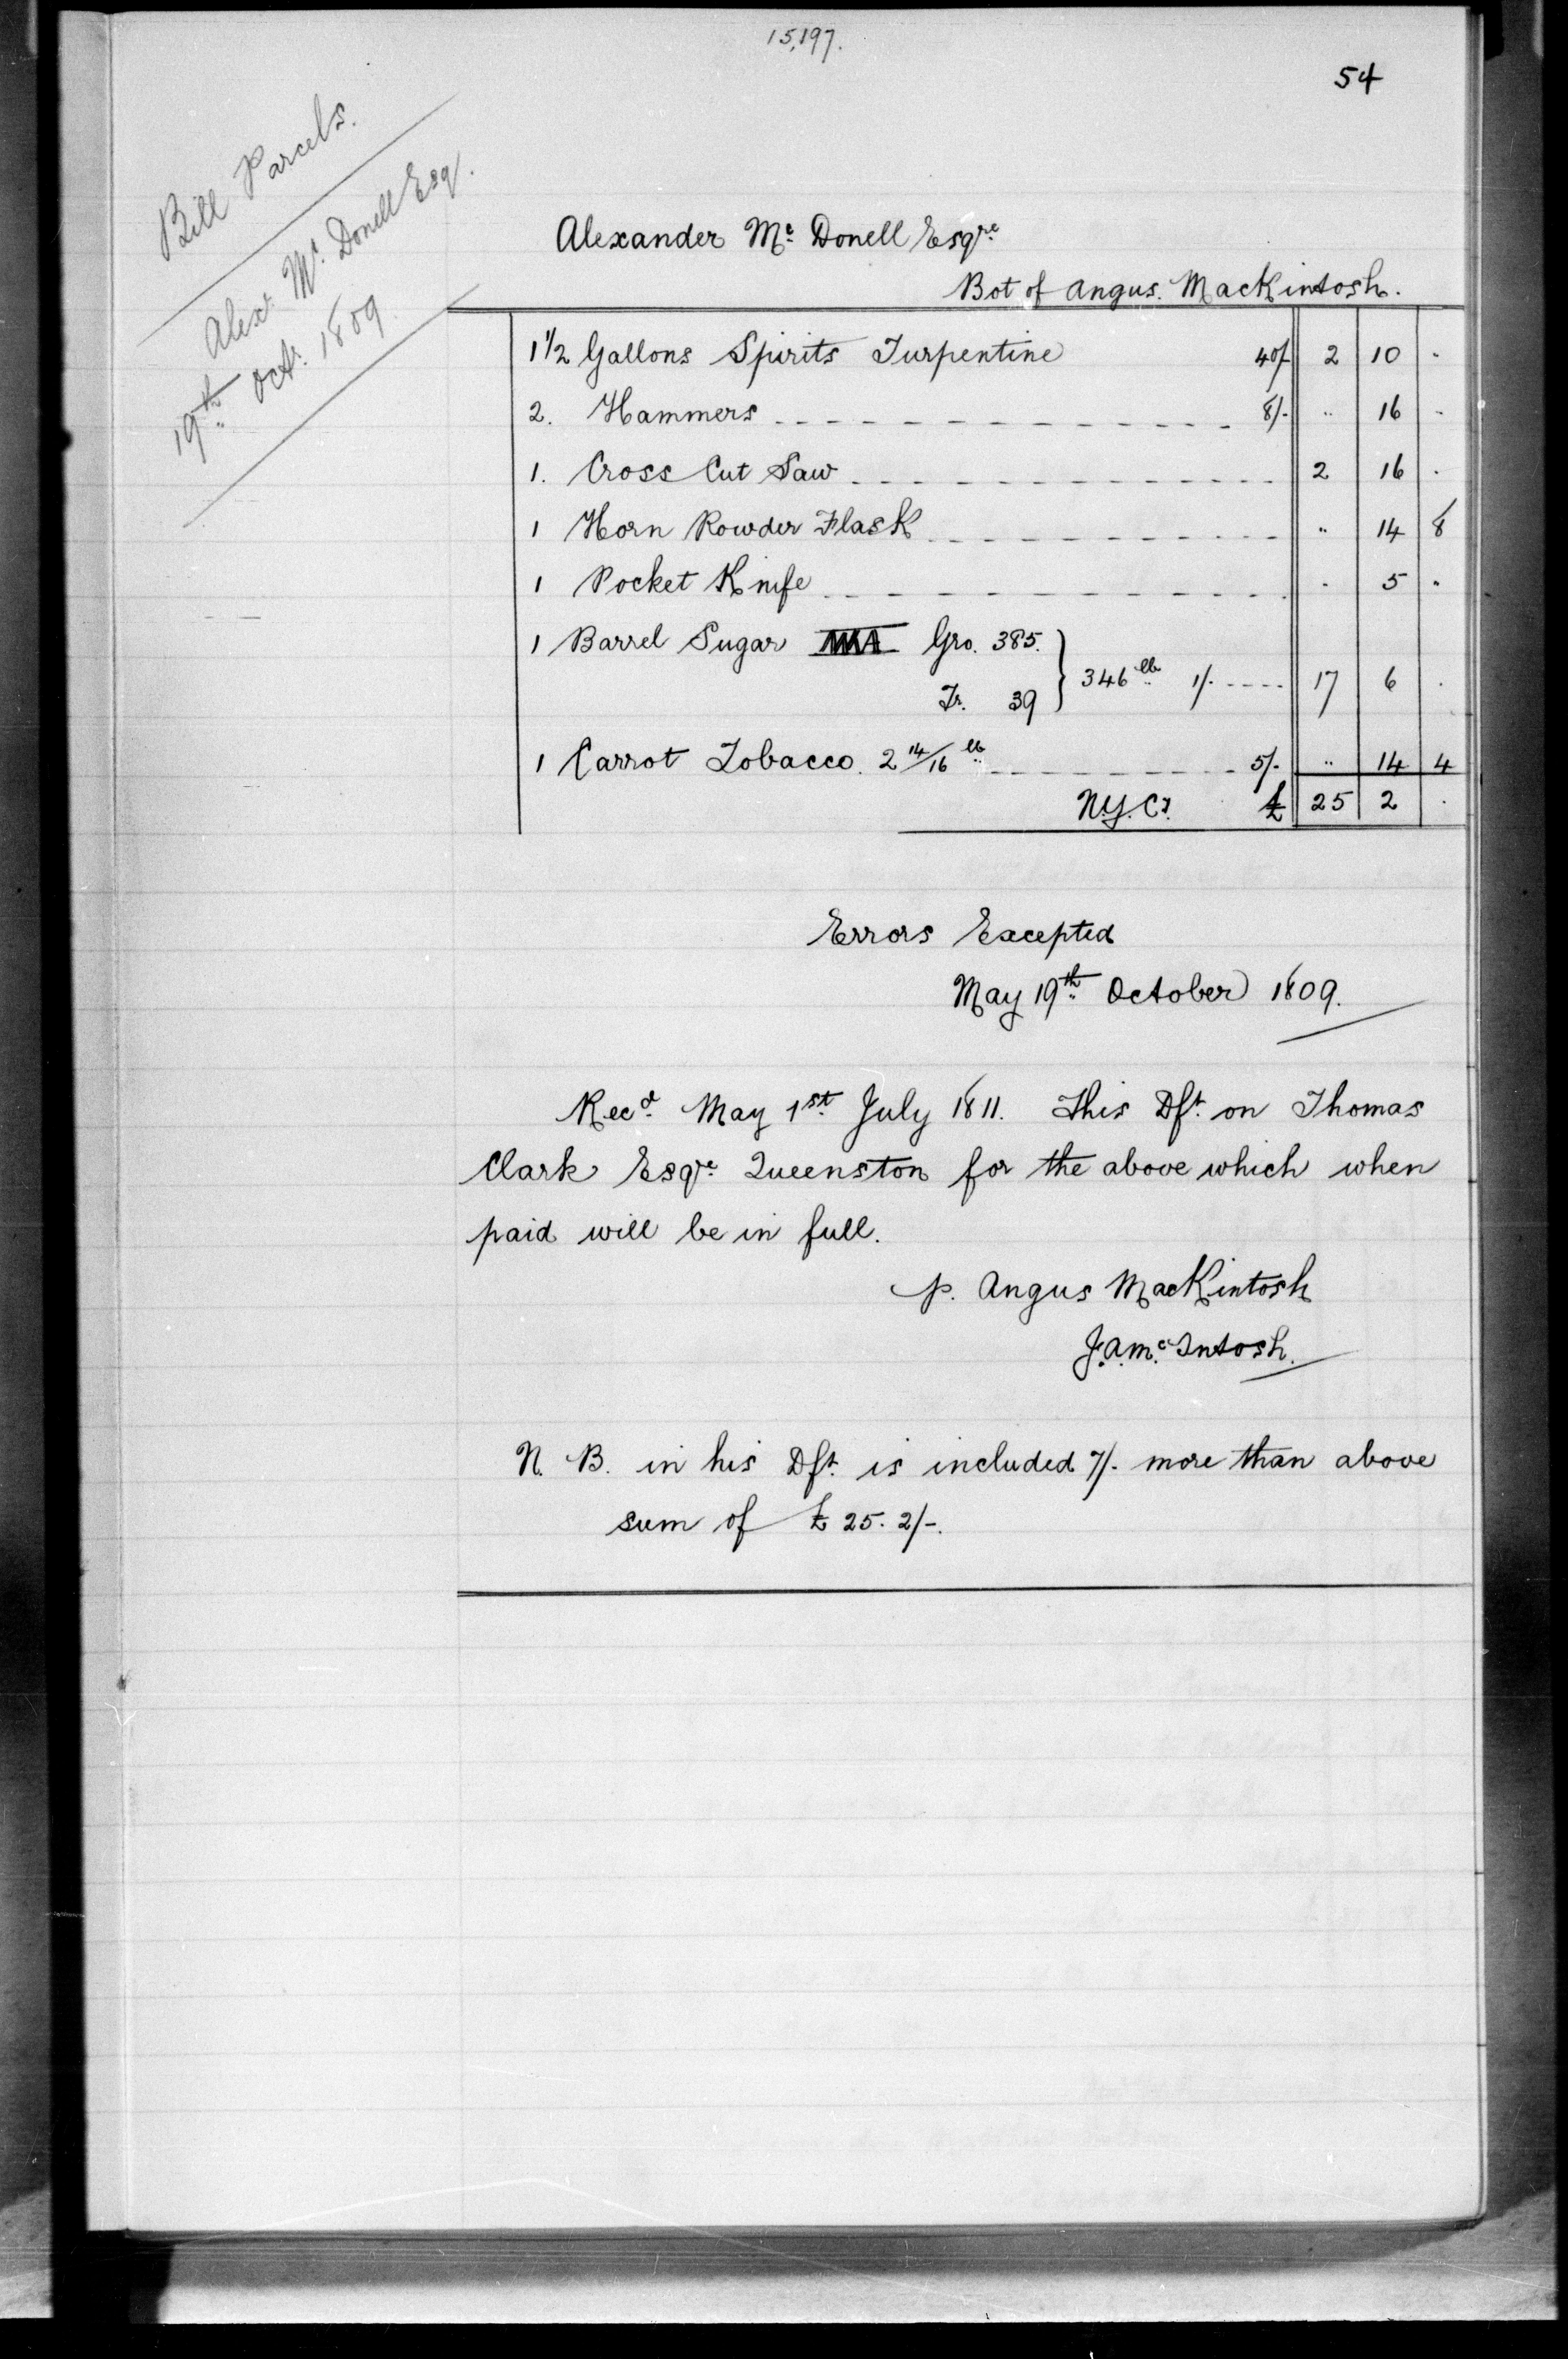 15,197.
54
Bill Parcels.
Alex. Mc. Donell Esq.
19th Oct. 1809.
Alexander Mc. Donell Esqre
Bot of Angus. MacKintosh.
1 1/2 Gallons Spirits Turpentine 40/ 2 10 .
2. Hammers 8/- " 16 -
1. Cross Cut Saw 2 16 .
1 Horn Powder Flask " 14 8
1 Pocket Knife . 5 "
1 Barrel Sugar Gro. 385.
Tr. 39 } 346 lb 1/- 17 6 .
1 Carrot Tobacco. 2 14/16 lb 5/- " 14 4
N.Y. Cy. £ 25 2 .
Errors Excepted
May 19th October 1809.
Recd. May 1st July 1811. This Dft. on Thomas
Clark Esqre Queenston for the above which when
paid will be in full.
p. Angus MacKintosh
J.A. Mc.Intosh.
N. B. in his Dft. is included 7/- more than above
sum of £ 25. 2/-.